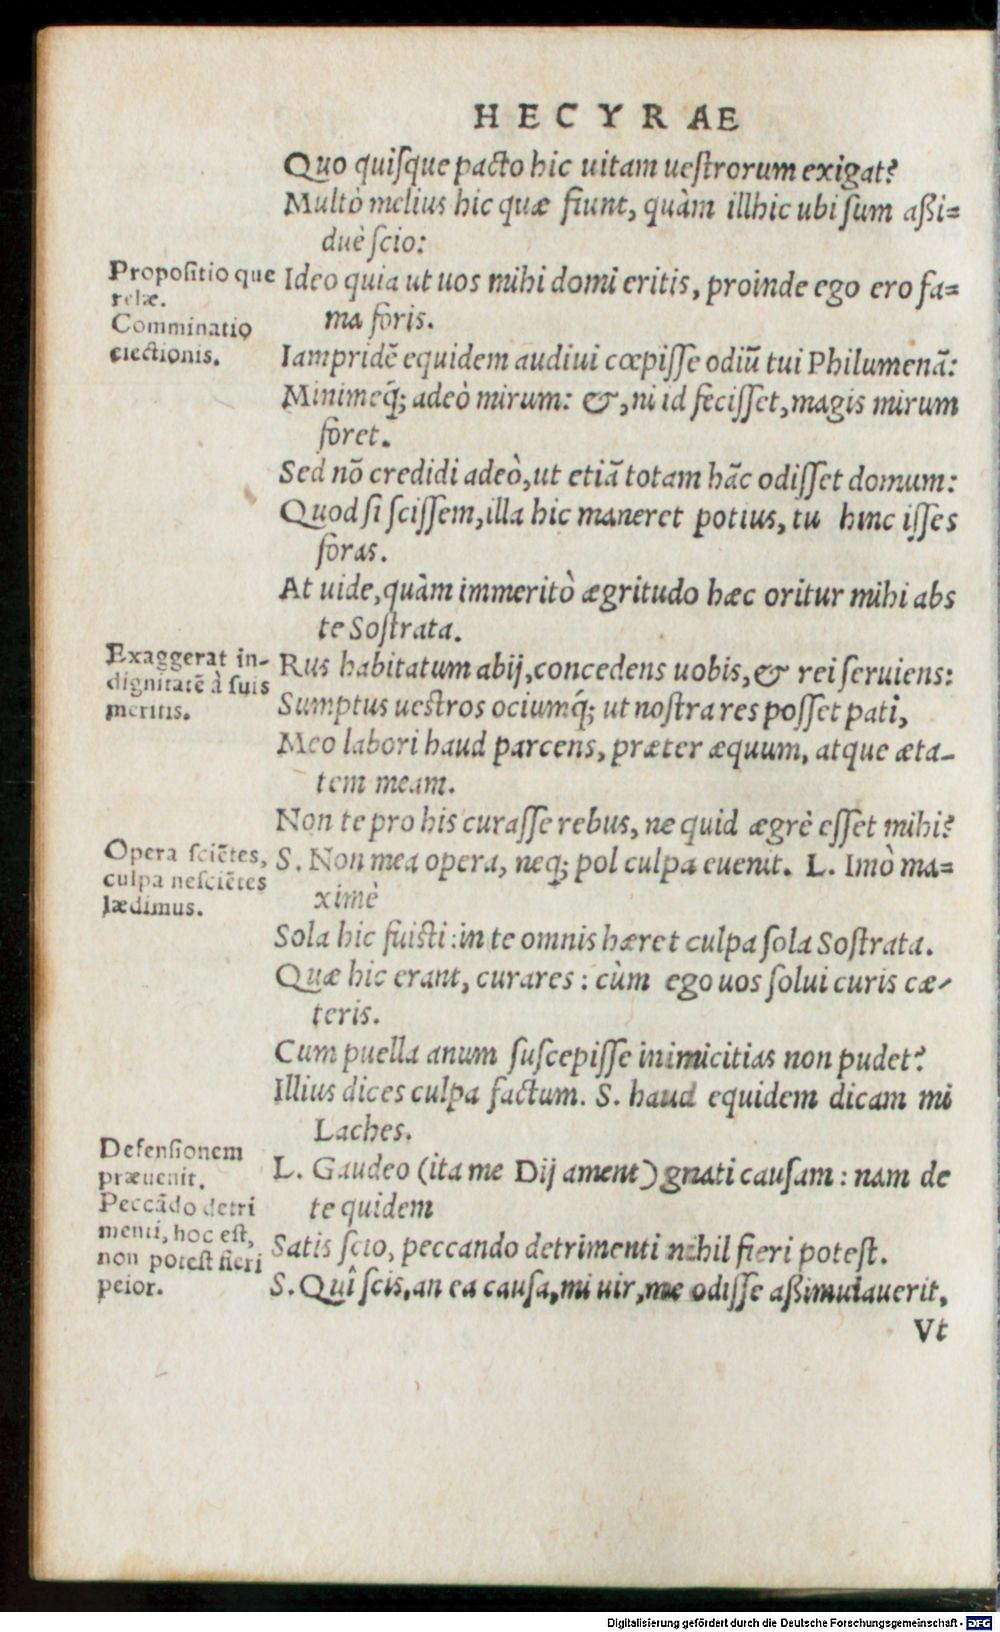 HECYRAE
Quo quiſque pacto hic uitam ueſtrorum exigat?
Multò melius hic quæ fiunt, quàm illhic ubi ſum aßi=
duè ſcio:
Propoſitio que
relæ.
Comminatio
eiectionis.
Ideo quia ut uos mihi domi eritis, proinde ego ero fa=
ma foris.
Iampridē equidem audiui cœpiſſe odiū tui Philumenā:
Minimeq́; adeò mirum: &, ni id feciſſet, magis mirum
foret.
Sed nō credidi adeò, ut etiā totam hāc odiſſet domum:
Quod ſi ſciſſem, illa hic maneret potius, tu hinc iſſes
foras.
At uide, quàm immeritò ægritudo hæc oritur mihi abs
te Soſtrata.
Exaggerat in-
dignitatē à ſuis
meritis.
Rus habitatum abij, concedens uobis, & rei ſeruiens:
Sumptus ueſtros ociumq́; ut noſtra res poſſet pati,
Meo labori haud parcens, præter æquum, atque æta-
tem meam.
Non te pro his curaſſe rebus, ne quid ægrè eſſet mihi?
Opera ſciētes,
culpa neſciētes
lædimus.
S. Non mea opera, neq; pol culpa euenit. L. Imò ma=
ximè
Sola hic fuiſti: in te omnis hæret culpa ſola Soſtrata.
Quæ hic erant, curares: cùm ego uos ſolui curis cæ-
teris.
Cum puella anum ſuſcepiſſe inimicitias non pudet?
Illius dices culpa factum. S. haud equidem dicam mi
Laches.
Defenſionem
præuenit.
Peccādo detri
menti, hoc eſt,
non poteſt fieri
peior.
L. Gaudeo (ita me Dij ament) gnati cauſam: nam de
te quidem
Satis ſcio, peccando detrimenti nihil fieri poteſt.
S. Quî ſcis, an ea cauſa, mi uir, me odiſſe aßimulauerit,
Vt
Digitalisierung gefördert durch die Deutsche Forschungsgemeinschaft - DFG